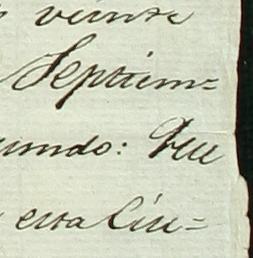 veinte
Septiem=
undo: Que
esta Ciu=